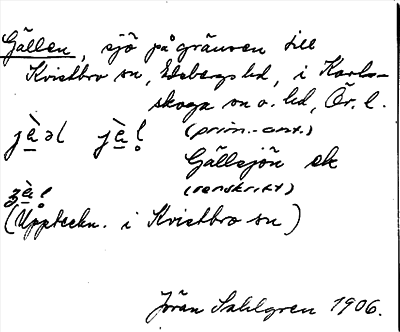 Gällen, sjö på gränsen till
Kvistbro sn, Edsbergs hd, i Karls-
skoga sn o. hd, Ör. l.
jè̱əl jè̱l̥ (prim.-ant.)
Gällsjön ek
ʒè̱l̥ (renskrift)
(Uppteckn. i Kvistbro sn)
Jöran Sahlgren 1906.